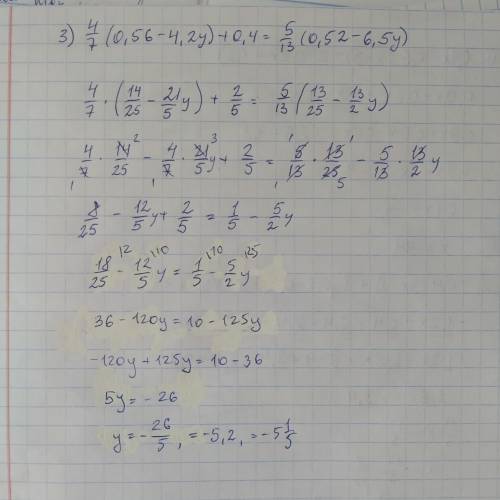 3) 4/7 (0,56 - 4,2y) + 0,4 = 5/13 (0,52 - 6,5y)
4/7 · (14/25 - 21/5 y) + 2/5 = 5/13 (13/25 - 13/2 y)
4/7 · 14/25 - 4/7 · 21/5 y + 2/5 = 5/13 · 13/25 - 5/13 · 13/2 y
8/25 - 12/5 y + 2/5 = 1/5 - 5/2 y
18/25 - 12/5 y = 1/5 - 5/2 y
36 - 120y = 10 - 125y
-120y + 125y = 10 - 36
5y = - 26
y = - 26/5, = -5,2, = -5 1/5